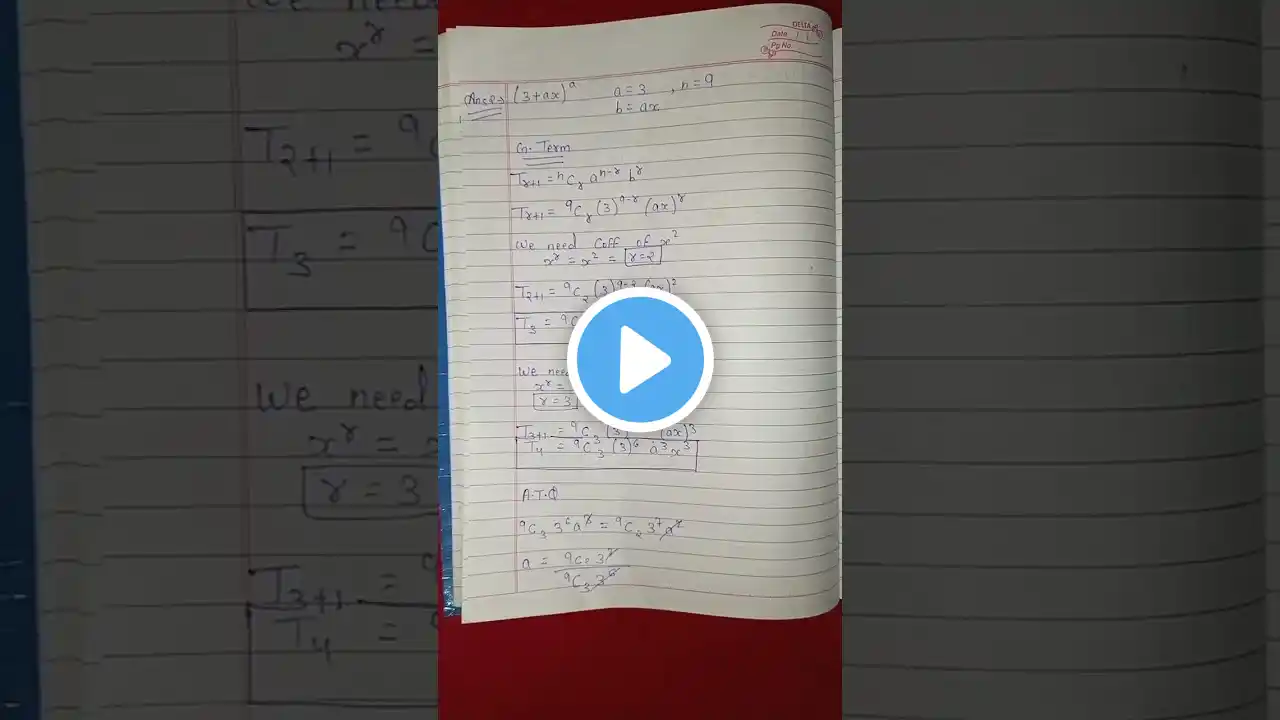 DELTA
Date
Pg No.
(3+ax)⁹ a=3 , n=9
b=ax
G. Term
Tᵣ₊₁ = ⁿCᵣ aⁿ⁻ʳ bʳ
Tᵣ₊₁ = ⁹Cᵣ (3)⁹⁻ʳ (ax)ʳ
We need Coff of x²
xʳ = x² = r=2
T₂₊₁ = ⁹C₂ (3)⁹⁻² (ax)²
T₃ = ⁹C
We need
xʳ =
r=3
T₃₊₁ = ⁹C₃ (3) (ax)³
T₄ = ⁹C₃ (3)⁶ a³x³
A.T.Q
⁹C₃ 3⁶a³ = ⁹C₂ 3⁷a²
a = ⁹C₂ 3⁷
⁹C₃ 3⁶